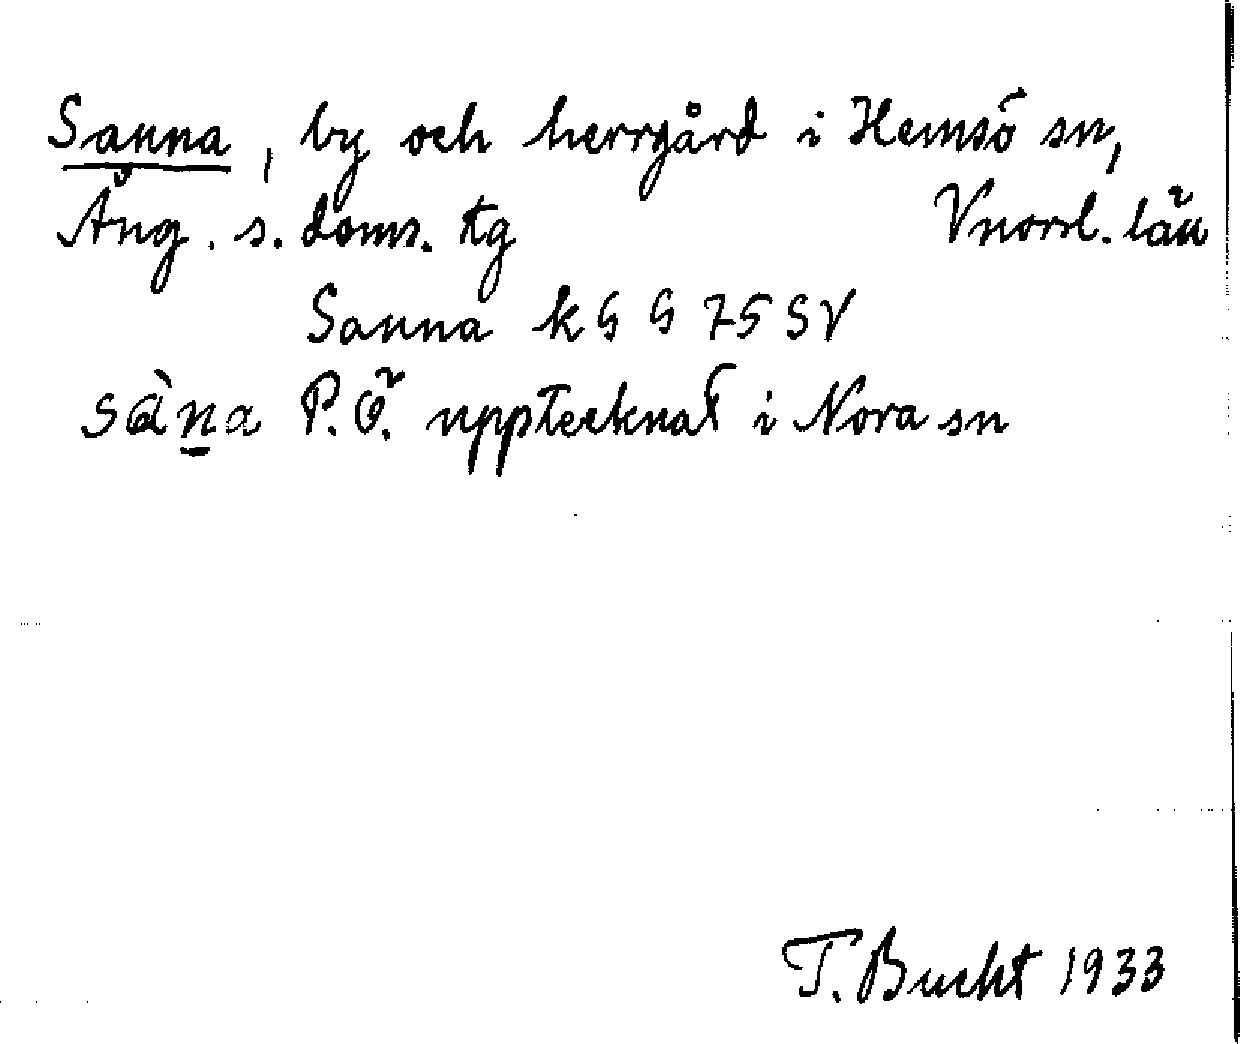 Sanna, by och herrgård i Hemsö sn,
Ång. s. doms. tg Vnorrl. län
Sanna k G G 75 SV
sàn̲a P.Ö. upptecknat i Nora sn
T. Bucht 1933